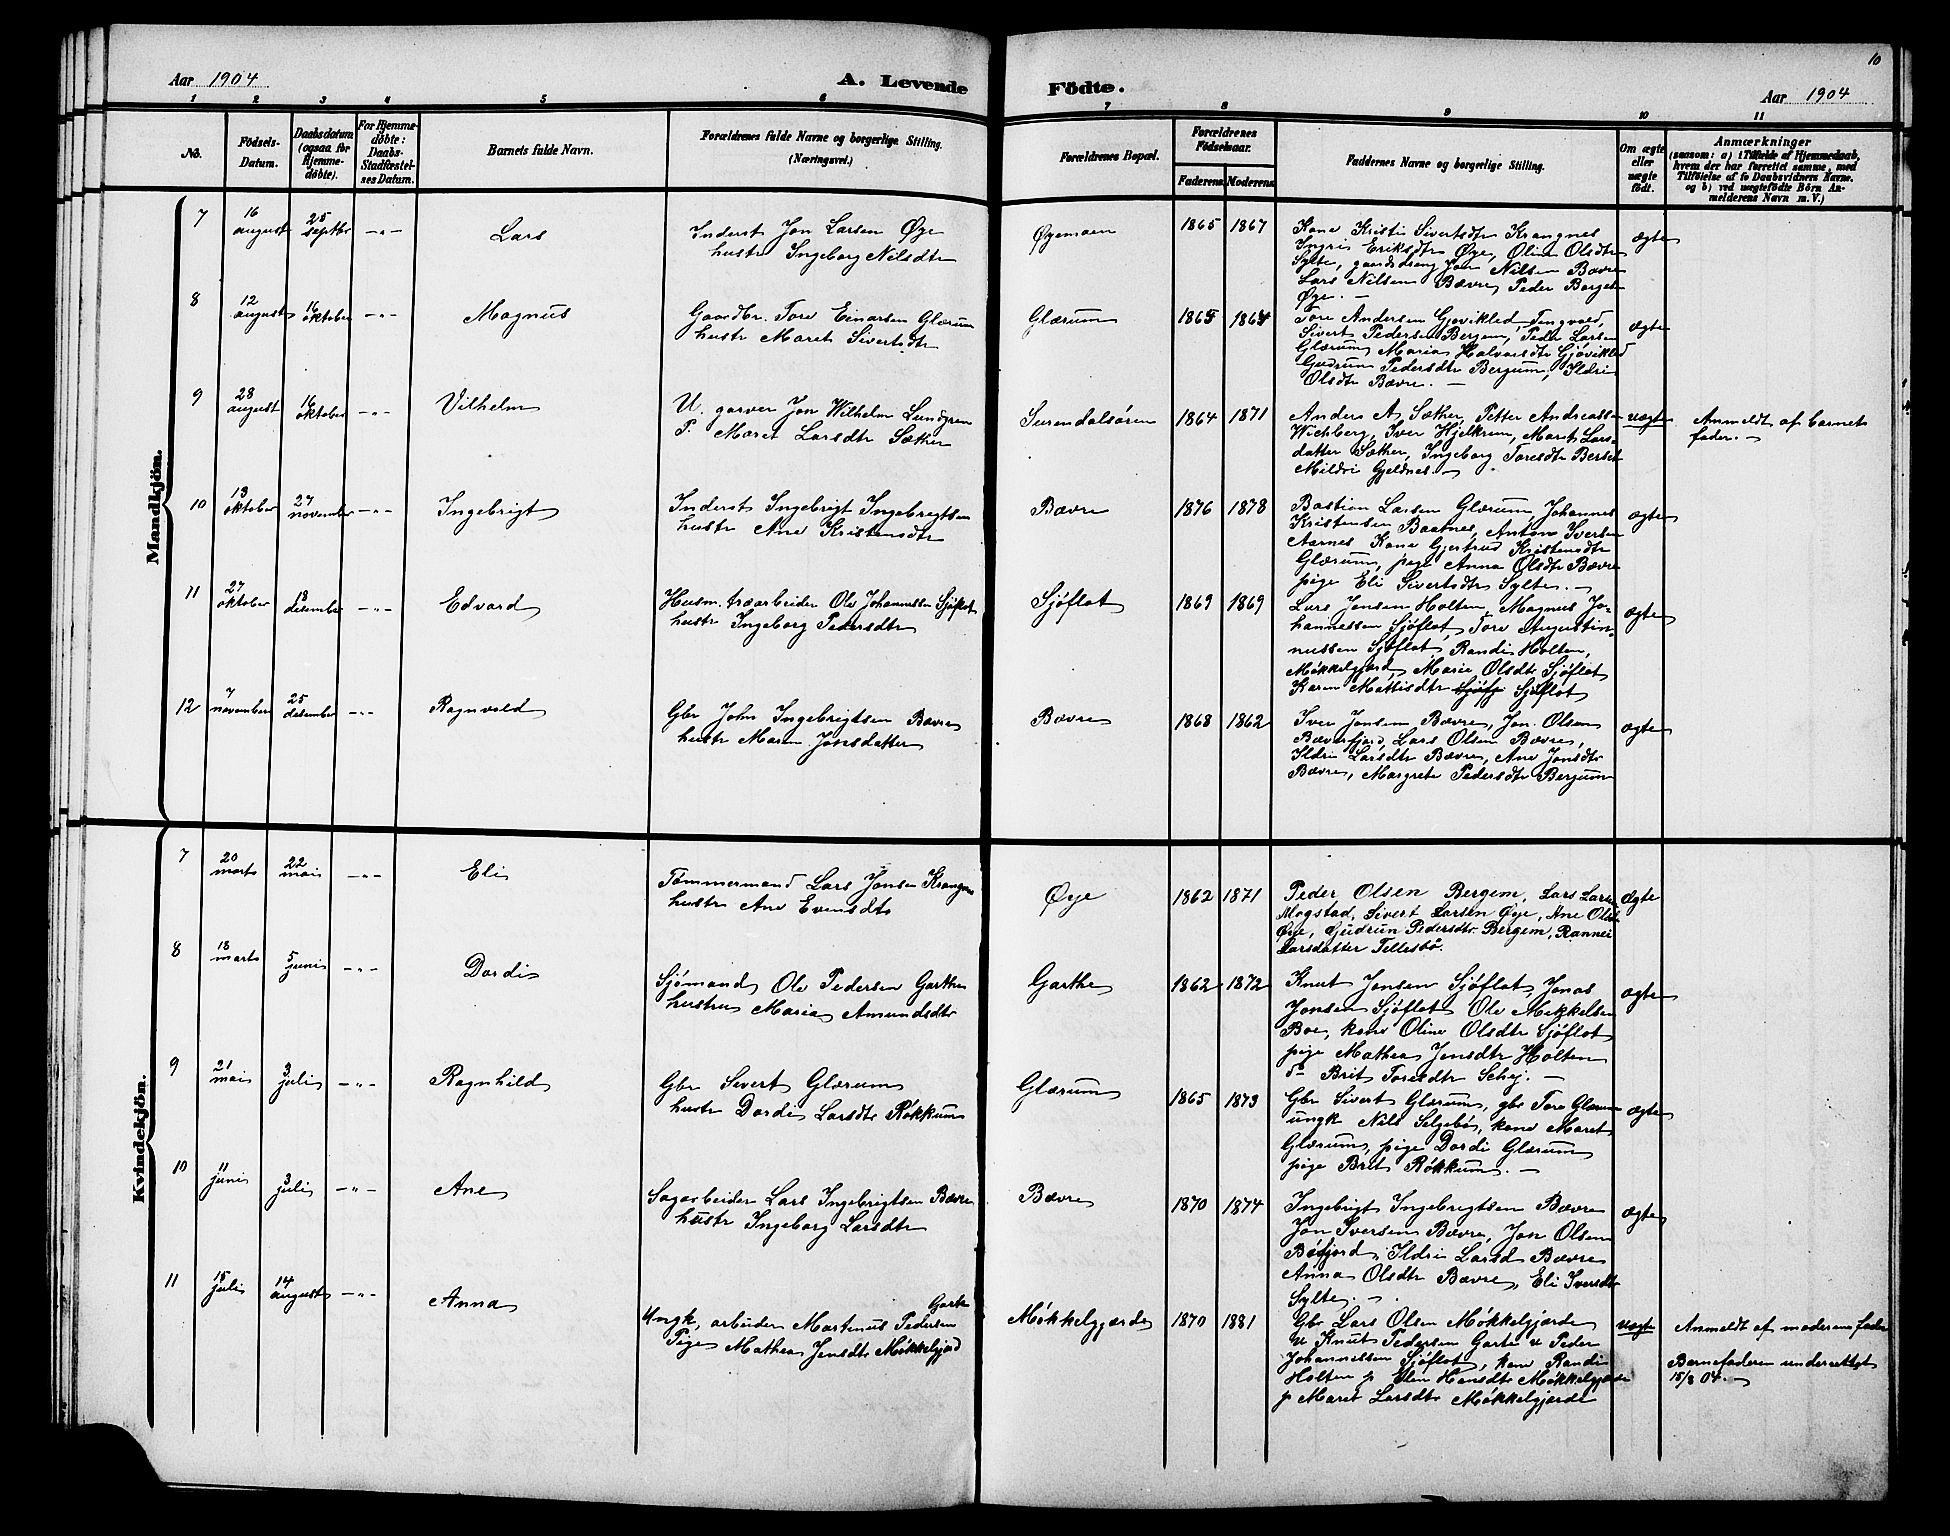 10
Aar 1904
A. Levende Födte.
Aar 1904
1 2 3 4 5 6 7 8 9 10 11
No.
Födsels-Datum.
Daabsdatum (ogsaa for Hjemme-döbte).
For Hjemme-döbte: Daabs-Stadfæstel-ses Datum.
Barnets fulde Navn.
Forældrenes fulde Navne og borgerlige Stilling. (Næringsvei.)
Forældrenes Bopæl.
Forældrenes Födselsaar.
Faderens Moderens
Faddernes Navne og borgerlige Stilling.
Om ægte eller uægte födt.
Anmærkninger
(saasom: a) i Tilfælde af Hjemmedaab, hvem der har forrettet samme, med Tilföielse af to Daabsvidners Navne. og b) ved uægtefödte Börn An-melderens Navn m. V.)
Mandkjön.
7 16 august 25 septbr -"- Lars
Inderst Jon Larsen Øye
hustr Ingeborg Nilsdtr
Øyemoen 1865 1867
Kone Kristi Sivertsdtr Krangnes
Ingri Eriksdtr Øye, Oline Olsdtr
Sylte, gaardsdreng Jon Nilsen Bævre
Lars Nilsen Bævre, Peder Borget
Øye. —
ægte
8 12 august 16 oktober -"- Magnus
Gaardbr. Tore Einarsen Glærum
hustr Maret Sivertsdtr
Glærum 1865 1864
Tore Andersen Gjøvikled, Tingvold,
Sivert Pedersen Bergem, Peder Larsen
Glærum, Maria Halvarsdtr Gjøvikled
Gudrun Pedersdtr Bergum, Ildri
Olsdtr Bævre. —
ægte
9 28 august 16 oktober -"- Vilhelm
U. garver Jon Wilhelm Lundgren
P. Maret Larsdtr Sæther
Surendalsøren 1864 1871
Anders A Sæther, Petter Andreassen
Wichberg, Iver Hjelkrem, Marit Lars-
datter Sæther, Ingeborg Toresdtr Berset
Mildri Gjeldnes. —
uægte
Anmeldt af barnets
fader. —
10 13 oktober 27 november -"- Ingebrigt
Inderst Ingebrigt Ingebrigtsen
hustr Ane Kristensdtr
Bævre 1876 1878
Bastian Larsen Glærum, Johannes
Kristensen Baatnes, Anton Iversen
Aarnes Kone Gjertrud Kristensdtr
Glærum, pige Anna Olsdtr Bævre
pige Eli Sivertsdtr Sylte. —
ægte
11 27 oktober 18 desember -"- Edvard
Husm. træarbeider Ole Johannessen Sjøflot
hustr Ingeborg Pedersdtr
Sjøflot 1869 1869
Lars Jensen Holten, Magnus Jo-
hannessen Sjøflot, Tore Augustin-
nussen Sjøflot, Randi Holten,
Møkkelgjerd, Marie Olsdtr Sjøflot
Karen Mattisdtr Sjøfj Sjøflot
ægte
12 7 november 25 desember -"- Ragnvald
Gbr John Ingebrigtsen Bævre
hustr Maren Jonsdatter
Bævre 1868 1862
Iver Jonsen Bævre, Jon Olsen
Bæverfjord, Lars Olsen Bævre,
Ildri Larsdtr Bævre, Ane Jonsdtr
Bævre, Margrete Pedersdtr Bergum
ægte
Kvindekjön.
7 20 marts 22 mai -"- Eli
Tømmermand Lars Jonsen Krangnes
hustr Ane Evensdtr
Øye 1862 1871
Peder Olsen Bergem, Lars Larsen
Mogstad, Sivert Larsen Øye, Ane Olsdtr
Øye, Gudrun Pedersdtr. Bergem, Rannei
Larsdatter Tellesbø.
Ægte
8 18 marts 5 juni -"- Dordi
Sjømand Ole Pedersen Garthe
hustru Maria Amundsdtr
Garthe 1862 1872
Knut Jonsen Sjøflot, Jonas
Jonsen Sjøflot Ole Mikkelsen
Boe, kone Oline Olsdtr Sjøflot
pige Mathea Jensdtr Holten
do Brit Toresdtr Schej. —
ægte
9 21 mai 3 juli -"- Ragnhild
Gbr Sivert Glærum
hustr Dordi Larsdtr Røkkum
Glærum 1865 1873
Gbr Sivert Glærum, gbr Tore Glærum
ungk Nils Selgebø, kone Maret
Glærum, pige Dordi Glærum
pige Brit Røkkum. —
ægte
10 11 juni 3 juli -"- Ane
Sagarbeider Lars Ingebrigtsen Bævre
hustr Ingeborg Larsdtr
Bævre 1870 1874
Ingebrigt Ingebrigtsen Bævre
Jon Iversen Bævre, Jon Olsen
Bøfjord, Ildri Larsd Bævre
Anna Olsdtr Bævre, Eli Iversdtr
Sylte. —
ægte
11 15 juli 14 august -"- Anna
Garte
Ungk, arbeider Martinus Pedersen
Pige Mathea Jensdtr Møkkelgjerd
Møkkelgjærde 1870 1881
Gbr Lars Olsen Møkkelgjærde
u Knut Pedersen Garte u Peder
Johannessen Sjøflot, kone Randi
Holten p Elen Hansdtr Møkkelgjærde
p Maret Larsdtr Møkkelgjærde
uægte
Anmeldt af moderens fader
Barnefaderen underrettet
15/8 04. —